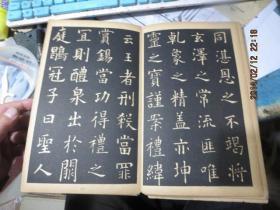 同湛恩之不竭將
玄澤之常流匪唯
乾象之精蓋亦坤
靈之寶謹案禮緯
云王者刑殺當罪
賞錫當功得禮之
宜則醴泉出於闕
庭鶡冠子曰聖人
2014/02/12 22:18